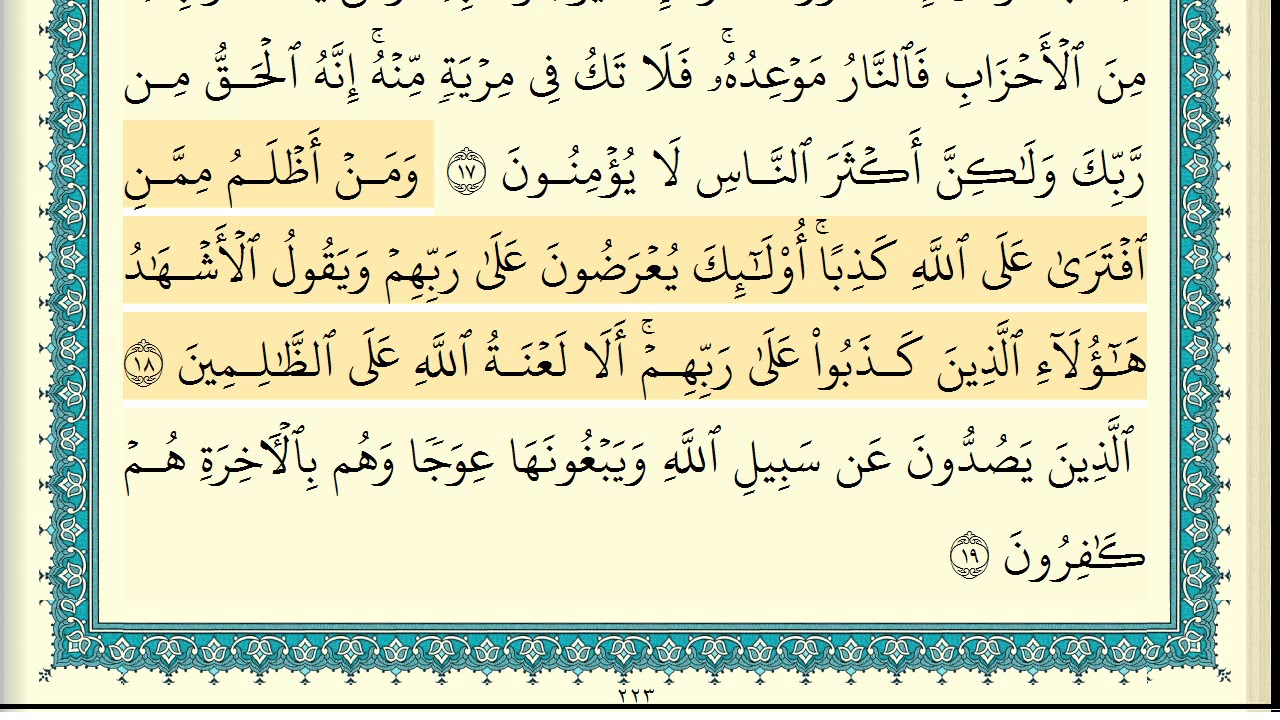 مِنَ ٱلۡأَحۡزَابِ فَٱلنَّارُ مَوۡعِدُهُۥۚ فَلَا تَكُ فِي مِرۡيَةٖ مِّنۡهُۚ إِنَّهُ ٱلۡحَقُّ مِن
رَّبِّكَ وَلَٰكِنَّ أَكۡثَرَ ٱلنَّاسِ لَا يُؤۡمِنُونَ ١٧ وَمَنۡ أَظۡلَمُ مِمَّنِ
ٱفۡتَرَىٰ عَلَى ٱللَّهِ كَذِبًاۚ أُوْلَٰٓئِكَ يُعۡرَضُونَ عَلَىٰ رَبِّهِمۡ وَيَقُولُ ٱلۡأَشۡهَٰدُ
هَٰٓؤُلَآءِ ٱلَّذِينَ كَذَبُواْ عَلَىٰ رَبِّهِمۡۚ أَلَا لَعۡنَةُ ٱللَّهِ عَلَى ٱلظَّٰلِمِينَ ١٨
ٱلَّذِينَ يَصُدُّونَ عَن سَبِيلِ ٱللَّهِ وَيَبۡغُونَهَا عِوَجٗا وَهُم بِٱلۡأٓخِرَةِ هُمۡ
كَٰفِرُونَ ١٩
٢٢٣